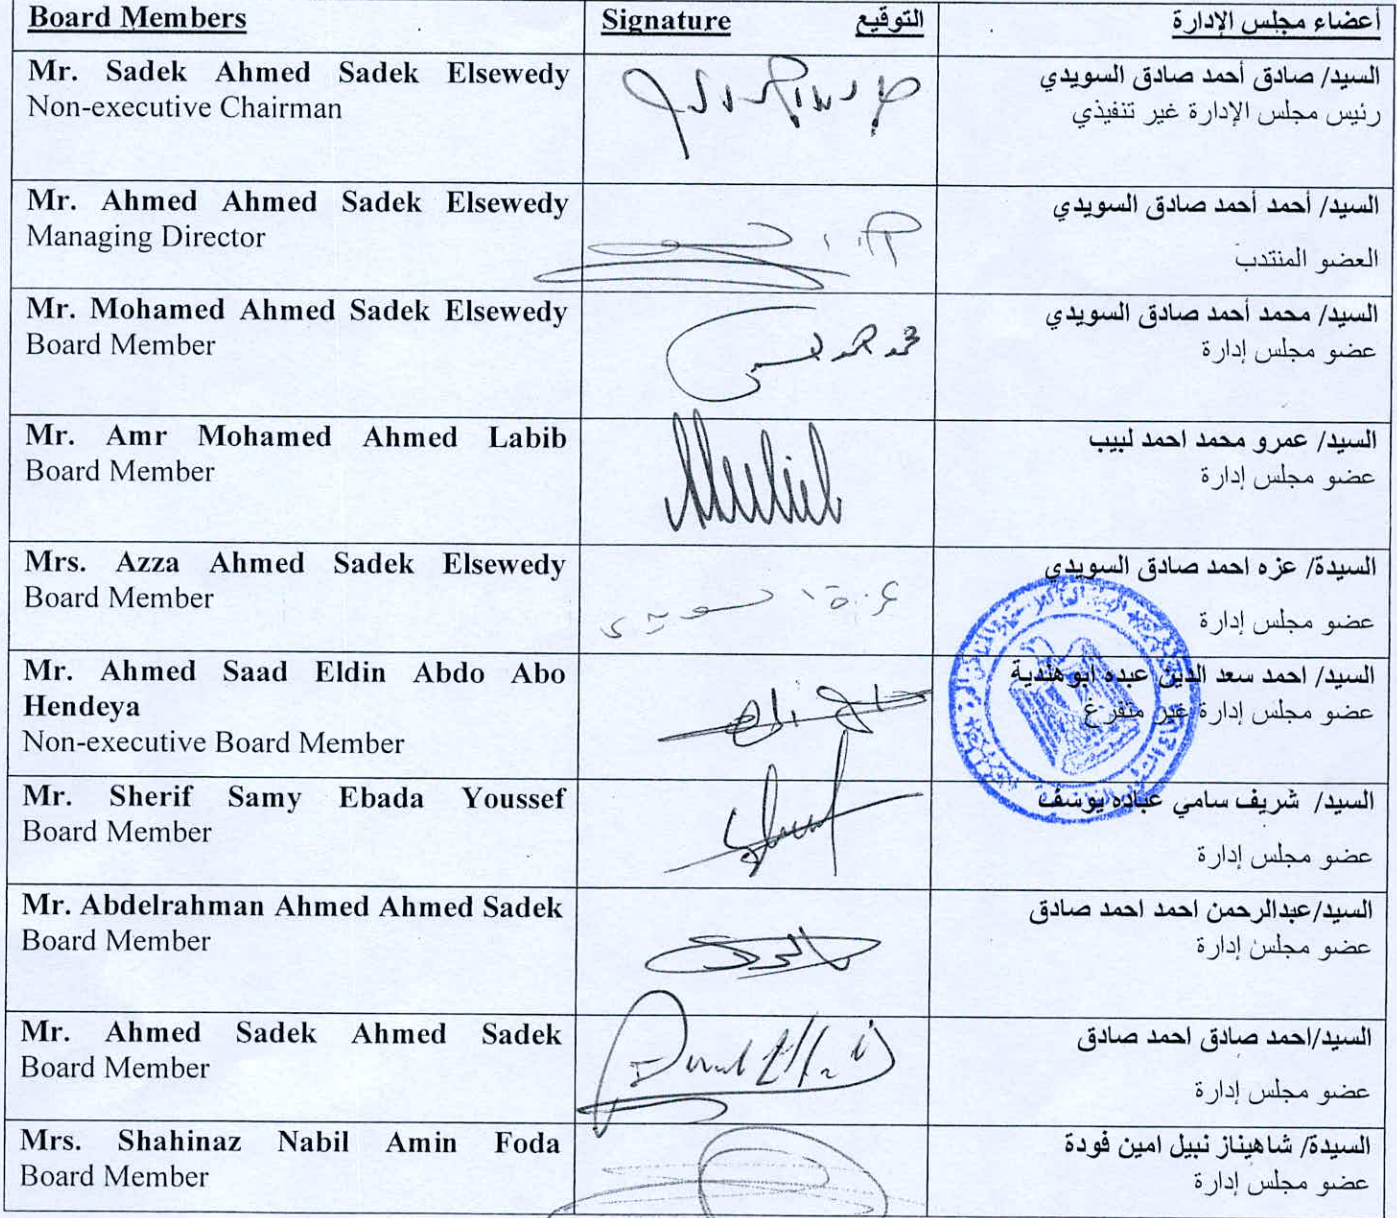 Board Members
Signature التوقيع
أعضاء مجلس الإدارة
Mr. Sadek Ahmed Sadek Elsewedy
Non-executive Chairman
السيد/ صادق أحمد صادق السويدي
رئيس مجلس الإدارة غير تنفيذي
Mr. Ahmed Ahmed Sadek Elsewedy
Managing Director
السيد/ أحمد أحمد صادق السويدي
العضو المنتدب
Mr. Mohamed Ahmed Sadek Elsewedy
Board Member
السيد/ محمد أحمد صادق السويدي
عضو مجلس إدارة
Mr. Amr Mohamed Ahmed Labib
Board Member
السيد/ عمرو محمد احمد لبيب
عضو مجلس إدارة
Mrs. Azza Ahmed Sadek Elsewedy
Board Member
السيدة/ عزه احمد صادق السويدي
عضو مجلس إدارة
Mr. Ahmed Saad Eldin Abdo Abo
Hendeya
Non-executive Board Member
السيد/ احمد سعد الدين عبده ابو هندية
عضو مجلس إدارة غير متفرغ
Mr. Sherif Samy Ebada Youssef
Board Member
السيد/ شريف سامي عباده يوسف
عضو مجلس إدارة
Mr. Abdelrahman Ahmed Ahmed Sadek
Board Member
السيد/عبدالرحمن احمد احمد صادق
عضو مجلس إدارة
Mr. Ahmed Sadek Ahmed Sadek
Board Member
السيد/احمد صادق احمد صادق
عضو مجلس إدارة
Mrs. Shahinaz Nabil Amin Foda
Board Member
السيدة/ شاهيناز نبيل امين فودة
عضو مجلس إدارة